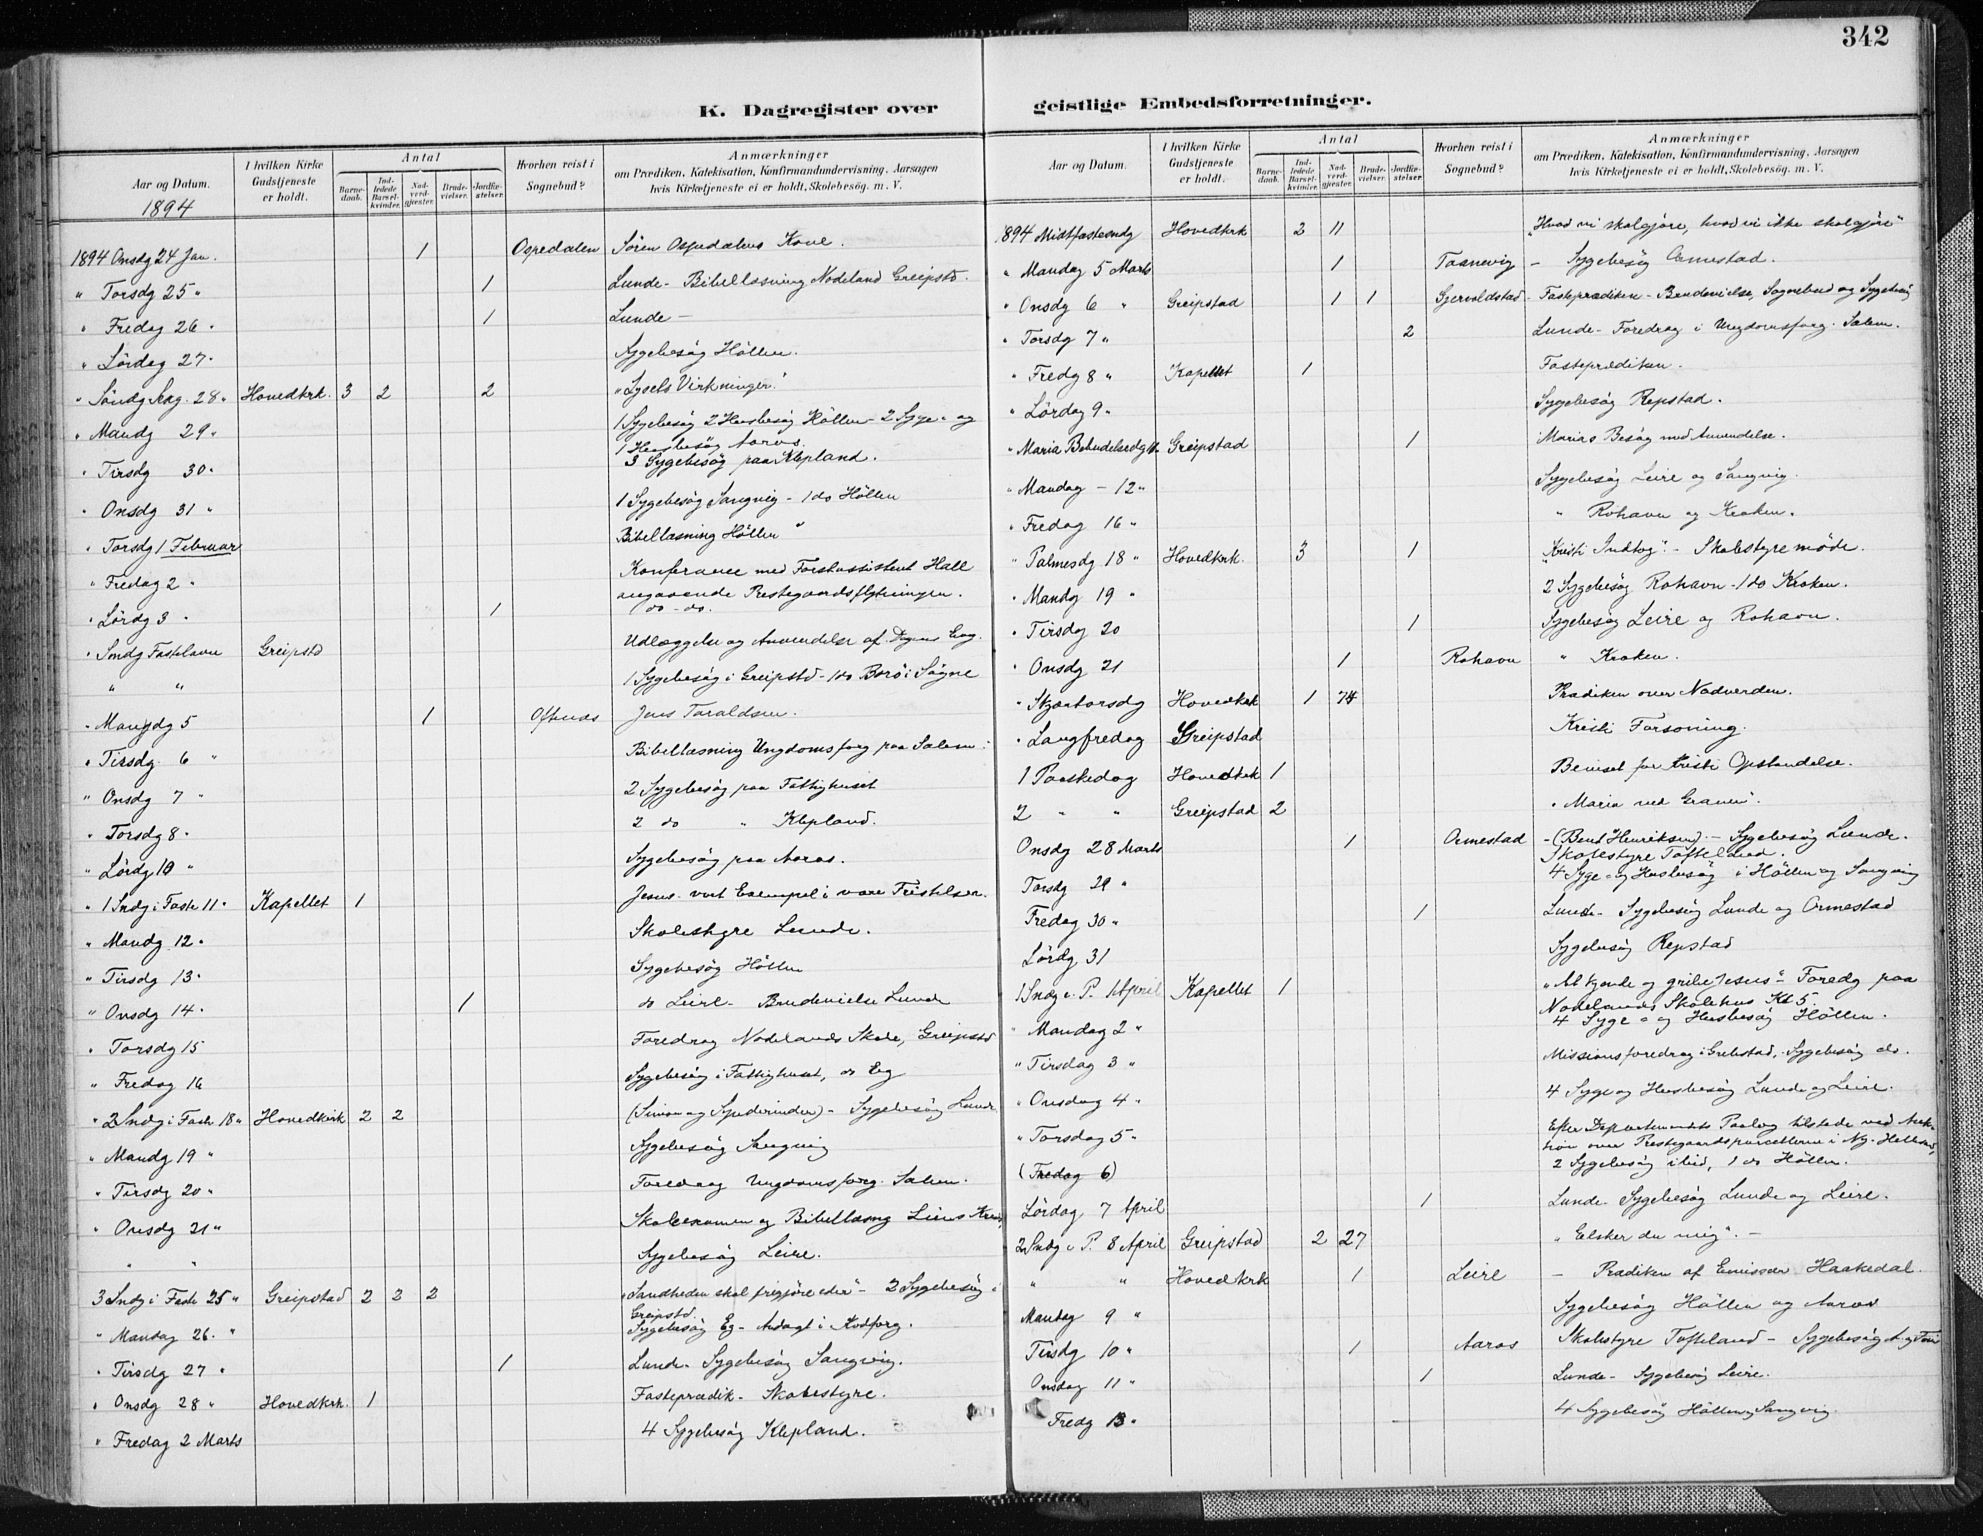 342
K. Dagregister over
Aar og Datum.
1894
I hvilken Kirke Gudstjeneste er holdt.
Antal
Barnedaab.
Indledede Barselkvinder.
Nadverdgjæster.
Brudevielser.
Jordfæstelser.
Hvorhen reist i Sognebud?
Anmærkninger
om Prædiken, Katekisation, Konfirmandundervisning, Aarsagen
hvis Kirketjeneste ei er holdt, Skolebesög. m. V.
1894 Onsdg 24 Jan. 1 Ospedalen Sören Ospedalens Kone.
" Torsdg 25 " 1 Lunde - Bibellæsning Nodeland Greipstd.
" Fredag 26 " 1 Lunde -
" Lördag 27 " Sygebesög Höllen.
" Söndg 28 " Hovedkrk. 3 2 2 "Lysets Virkninger."
" Mandg 29 " 1 Sygebesög 2 Husbesög Höllen - 2 Syge- og
1 Husbesög Aaros.
" Tirsdg 30 " 3 Sygebesög paa Klepland.
" Onsdg 31 " 1 Sygebesög Sangvig - 1 do Höllen
" Torsdg 1 Februar Bibellæsning Höllen
" Fredag 2 " Konferance med Forstassistent Hall
angaaende Prestegaardsflytningen.
" Lördg 3 " 1 do - do.
" Söndg Fastelavn Greipstd Udlæggelse og Anvendelse af Dagens Evg.
" " 1 Sygebesög i Greipstd - 1 do Borö i Sögne
" Mandg 5 1 Oftenes Jens Taraldsen.
" Tirsdg 6 " Bibellæsning Ungdomsforg paa Salem.
" Onsdg 7 " 2 Sygebesög paa Fattighuset
" Torsdg 8 " 2 do " Klepland.
" Lördg 10 " Sygebesög paa Aaros.
" 1 Sndg i Faste 11 " Kapellet 1 Jesus vort Exempel i vore Fristelser.
" Mandg 12 " Skolestyre Lunde.
" Tirsdg 13 " Sygebesög Höllen
" Onsdg 14 " 1 do Leire - Brudevielse Lunde
" Torsdg 15 Foredrag Nodelands Skole, Greipstd
" Fredag 16 Sygebesög i Fattighuset, do Eeg
" 2 Sndg i Faste 18 " Hovedkirk 2 2 (Simon og Synderinden) - Sygebesög Lunde
" Mandg 19 " Sygebesög Sangvig
" Tirsdg 20 " Foredrag Ungdomsforg. Salem.
" Onsdg 21 " Skoleexamen og Bibellæsng
" " Sygebesög Leire.
3 Sndg i Faste 25 " Greipstad 2 2 2 "Sandheden skal frigjöre eder" - 2 Sygebesög i
Greipstd.
" Mandag 26 " Sygebesög Eg -
" Tirsdg 27 " 1 Lunde - Sygebesög Sangvig.
" Onsdg 28 " Hovedkrk. 1 Fasteprædik - Skolestyre.
" Fredag 2 Marts 4 Sygebesög Klepland.
geistlige Embedsforretninger.
Aar og Datum.
I hvilken Kirke Gudstjeneste er holdt.
Antal
Barnedaab.
Indledede Barselkvinder.
Nadverdgjæster.
Brudevielser.
Jordfæstelser.
Hvorhen reist i Sognebud?
Anmærkninger
om Prædiken, Katekisation, Konfirmandundervisning, Aarsagen
hvis Kirketjeneste ei er holdt, Skolebesög. m. V.
1894 Midtfastesndg Hovedkrk 2 11 "Hvad vi skal gjöre, hvad vi ikke skal gjöre"
" Mandag 5 Marts 1 Taanevig - Sygebesög Ormestad.
" Onsdg 6 " Greipstad 1 1 Gjervoldstad Fasteprædiken - Brudevielse, Sognebud og Sygebesög
" Torsdg 7 " 2 Lunde - Foredrag i Ungdomsforg. Salem.
" Fredg 8 " Kapellet 1 Fasteprædiken.
" Lördag 9 " Sygebesög Repstad.
" Maria Bebudelsedg 11. Greipstad 1 Marias Besög med Anvendelse.
" Mandag - 12 " Sygebesög Leire og Sangvig.
" Fredag 16 " " Rohavn og Kroken.
" Palmesdg 18 " Hovedkrk. 3 1 "Kristi Indtog". - Skolestyremöde.
" Mandg 19 " 2 Sygebesög Rohavn - 1 do Kroken.
" Tirsdg 20 1 Sygebesög Leire og Rohavn.
" Onsdg 21 1 Rohavn " Kroken.
" Skjærtorsdg Hovedkrk 1 74 Prædiken over Nadverden.
" Langfredag Greipstad Kristi Forsoning.
1 Paaskedag Hovedkrk 1 Beviset for Kristi Opstandelse.
2 " " Greipstad 2 "Maria ved Graven".
Onsdg 28 Marts 1 Ormestad - (Bent Henriksen) - Sygebesög Lunde.
Skolestyre Tofteland.
Torsdg 29 " 4 Syge- og Husbesög i Höllen og Sangvig
Fredag 30 " 1 Lunde - Sygebesög Lunde og Ormestad
Lördg 31 Sygebesög Repstad
1 Sndg e. P. 1 April Kapellet 1 "At kjende og gribe Jesus" - Foredg paa
Nodelands Skolehus Kl 5.
" Mandag 2 " 4 Syge- og Husbesög Höllen.
" Tirsdag 3 " Missionsforedrag i Grebstad, Sygebesög do.
" Onsdag 4 " 4 Syge og Husbesög Lunde og Leire.
" Torsdag 5 " Efter Departementets Paalæg tilstede ved Auktion
over Prestegaardsparcellerne i Ny-Hellesund,
(Fredag 6) 2 Sygebesög ibid, 1 do Höllen.
Lördag 7 April 1 Lunde - Sygebesög Lunde og Leire.
2 Sndg e. P. 8 April Greipstad 2 27 "Elsker du mig". -
" " Hovedkrk 1 Leire - Prædiken af Emissær Haakedal.
Mandag 9 " Sygebesög Höllen og Aaros
Tirsdg 10 " 1 Aaros Skolestyre Tofteland - Sygebesög
Onsdag 11 " 1 Lunde - Sygebesög Leire.
Fredg 13 " 4 Sygebesög Höllen og Sangvig.